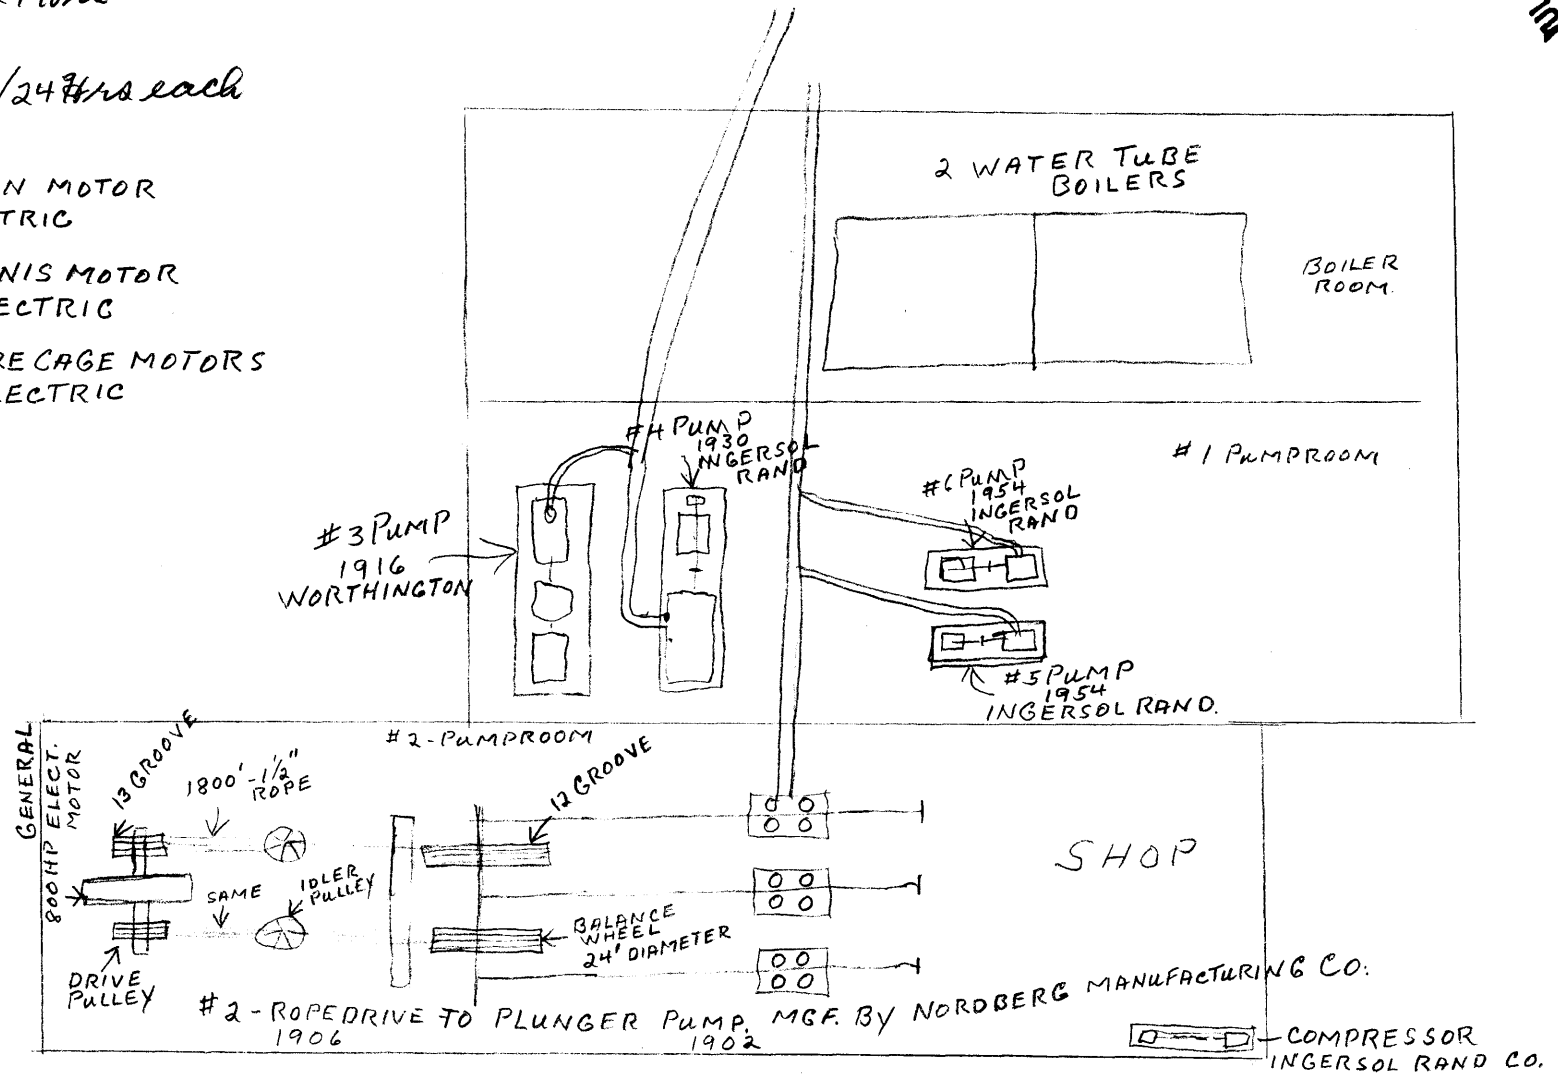 /24 Hrs each
N MOTOR
TRIC
NIS MOTOR
ECTRIC
RE CAGE MOTORS
LECTRIC
2 WATER TUBE
BOILERS
BOILER
ROOM.
#4 PUMP
1930
INGERSOL
RAND
#1 PUMPROOM
#6 PUMP
1954
INGERSOL
RAND
#3 PUMP
1916
WORTHINGTON
#5 PUMP
1954
INGERSOL RAND.
#2-PUMPROOM
GENERAL
800HP ELECT.
MOTOR
13 GROOVE
1800'-1½"
ROPE
12 GROOVE
SHOP
SAME
IDLER
PULLEY
BALANCE
WHEEL
24' DIAMETER
DRIVE
PULLEY
#2-ROPEDRIVE TO PLUNGER PUMP. MGF. BY NORDBERG MANUFACTURING CO.
1906 1902
COMPRESSOR
INGERSOL RAND CO.